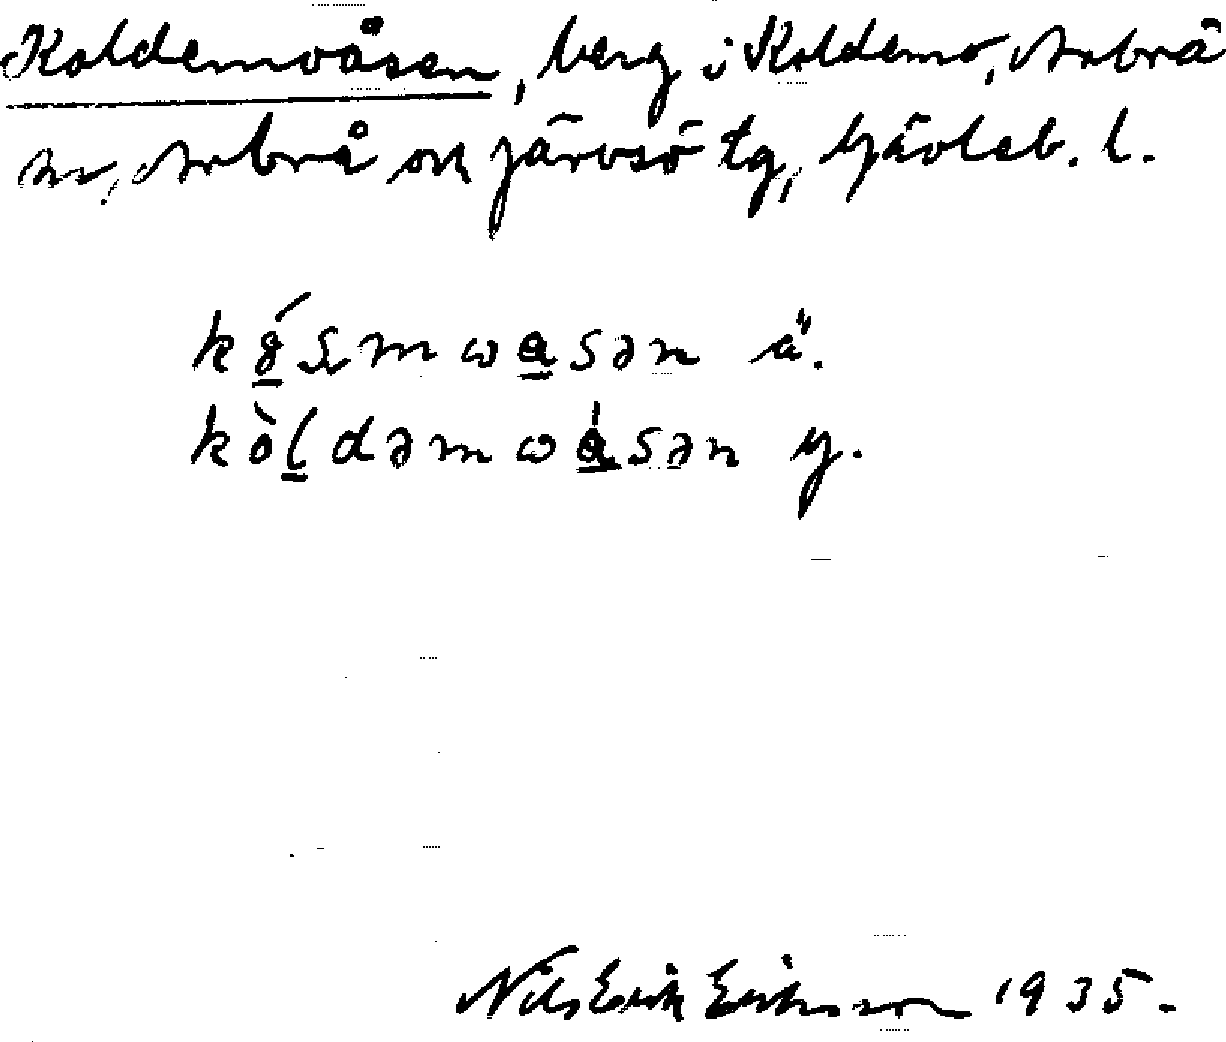 Koldemoåsen, berg i Koldemo, Arbrå
sn, Arbrå ok Järvsö tg, Gävleb. l.
ä.
kòldəmωásən y.
Nils Erik Eriksson 1935.